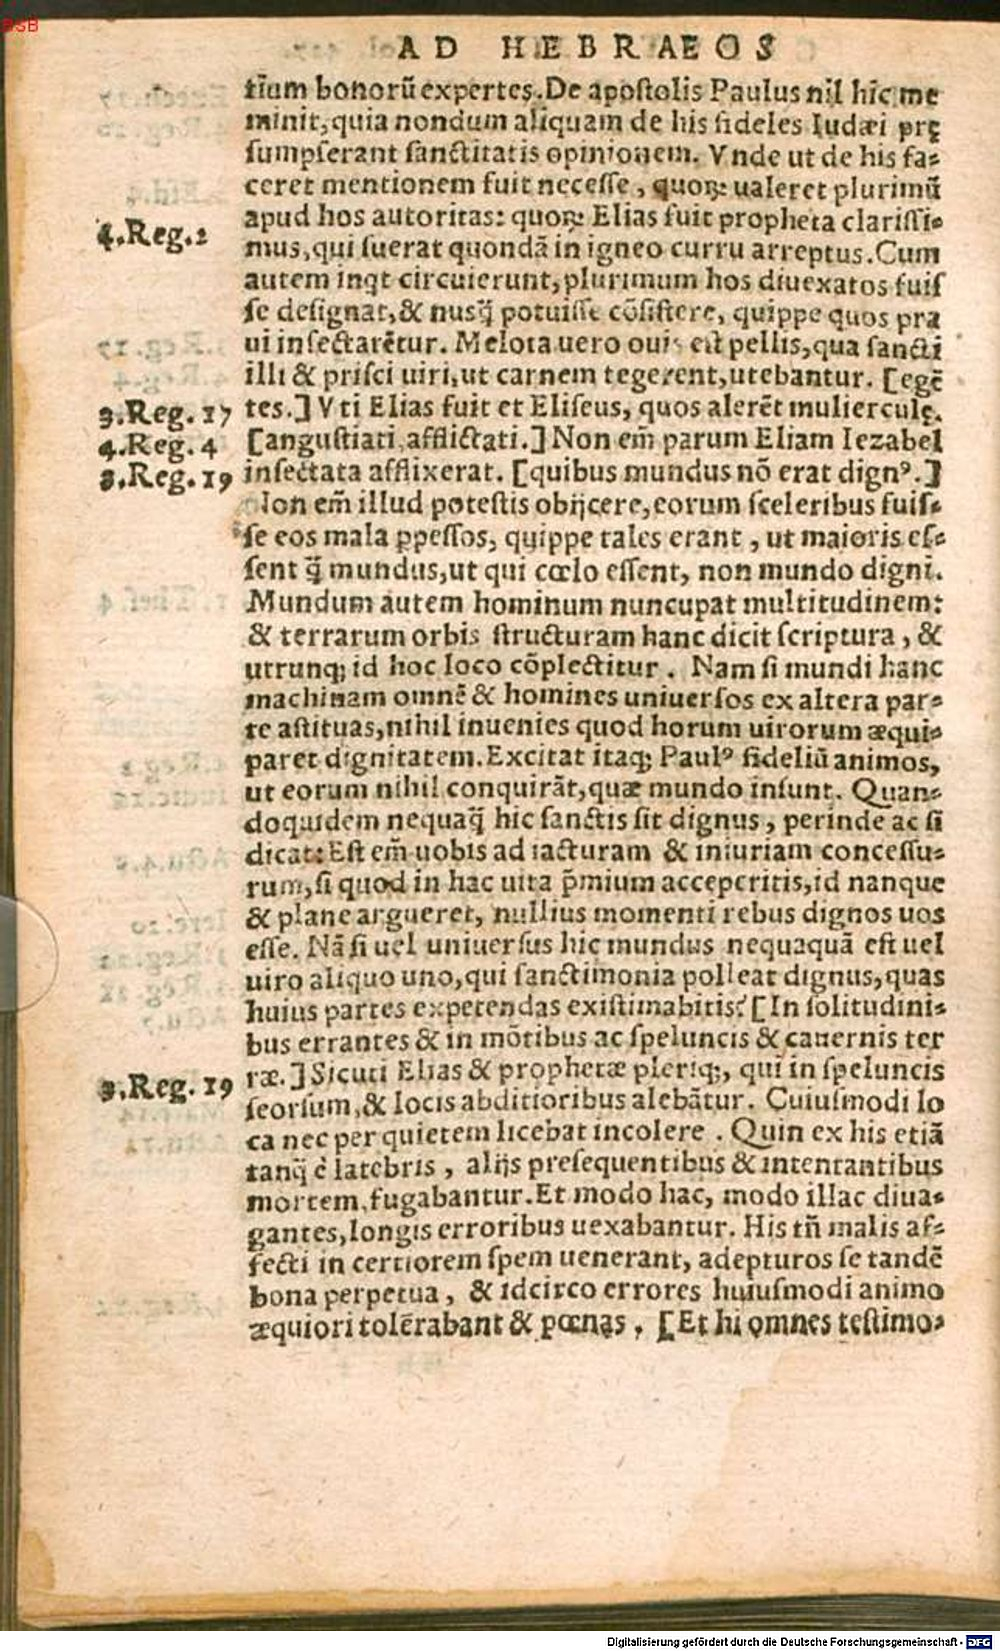 BSB
AD HEBRAEOS
tiũm bonorũ expertes. De apoſtolis Paulus nil hîc me
minit, quia nondum aliquam de his fideles Iudæi prę
ſumpſerant ſanctitatis opinionem. Vnde ut de his fa⸗
ceret mentionem fuit neceſſe, quoꝝ ualeret plurimũ
apud hos autoritas: quoꝝ Elias fuit propheta clariſſi⸗
4.Reg.2
mus, qui fuerat quondã in igneo curru arreptus. Cum
autem inqt circuierunt, plurimum hos diuexatos fuiſ
ſe deſignat, & nusq̃ potuiſſe cõſiſtere, quippe quos pra
ui inſectarẽtur. Melota uero ouis eſt pellis, qua ſancti
illi & priſci uiri, ut carnem tegerent, utebantur. [egẽ
3.Reg. 17
tes.] Vti Elias fuit et Eliſeus, quos alerẽt mulierculę.
4.Reg. 4
[anguſtiati, afflictati.] Non em̃ parum Eliam Iezabel
3.Reg. 19
inſectata afflixerat. [quibus mundus nõ erat dignꝰ.]
Non em̃ illud poteſtis obijcere, eorum ſceleribus fuiſ⸗
ſe eos mala ꝑpeſſos, quippe tales erant, ut maioris eſ⸗
ſent q̃ mundus, ut qui cœlo eſſent, non mundo digni.
Mundum autem hominum nuncupat multitudinem:
& terrarum orbis ſtructuram hanc dicit ſcriptura, &
utrunq; id hoc loco cõplectitur. Nam ſi mundi hanc
machinam omnẽ & homines uniuerſos ex altera par⸗
te aſtituas, nihil inuenies quod horum uirorum æqui⸗
paret dignitatem. Excitat itaq; Paulꝰ fideliũ animos,
ut eorum nihil conquirãt, quæ mundo inſunt. Quan⸗
doquidem nequaq̃ hic ſanctis ſit dignus, perinde ac ſi
dicat: Eſt em̃ uobis ad iacturam & iniuriam conceſſu⸗
rum, ſi quod in hac uita p̃mium acceperitis, id nanque
& plane argueret, nullius momenti rebus dignos uos
eſſe. Nã ſi uel uniuerſus hic mundus nequaquã eſt uel
uiro aliquo uno, qui ſanctimonia polleat dignus, quas
huius partes expetendas exiſtimabitis? [In ſolitudini⸗
bus errantes & in mõtibus ac ſpeluncis & cauernis ter
3.Reg. 19
ræ.] Sicuti Elias & prophetæ pleriq;, qui in ſpeluncis
ſeorſum, & locis abditioribus alebãtur. Cuiuſmodi lo
ca nec per quietem licebat incolere. Quin ex his etiã
tanq̃ è latebris, alijs preſequentibus & intentantibus
mortem, fugabantur. Et modo hac, modo illac diua⸗
gantes, longis erroribus uexabantur. His tñ malis af⸗
fecti in certiorem ſpem uenerant, adepturos ſe tandẽ
bona perpetua, & idcirco errores huiuſmodi animo
æquiori tolẽrabant & pœnas. [Et hi omnes teſtimo⸗
Digitalisierung gefördert durch die Deutsche Forschungsgemeinschaft - DFG